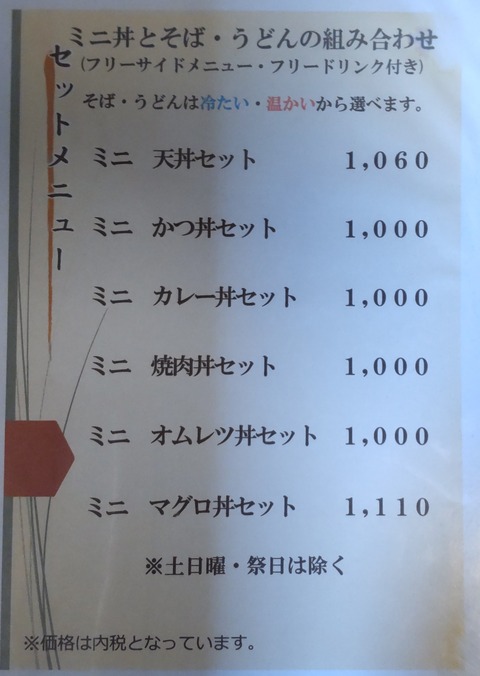 セットメニュー
ミニ丼とそば・うどんの組み合わせ
(フリーサイドメニュー・フリードリンク付き)
そば・うどんは冷たい・温かいから選べます。
ミニ 天丼セット 1,060
ミニ かつ丼セット 1,000
ミニ カレー丼セット 1,000
ミニ 焼肉丼セット 1,000
ミニ オムレツ丼セット 1,000
ミニ マグロ丼セット 1,110
※土日曜・祭日は除く
※価格は内税となっています。